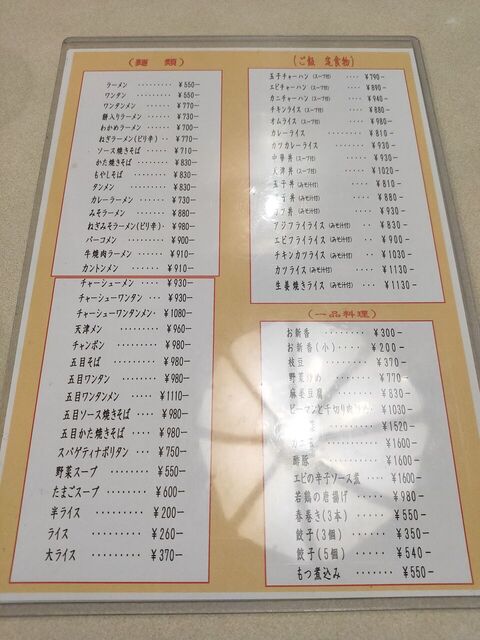 (麺 類)
ラーメン ········· ¥550-
ワンタン ········· ¥550-
ワンタンメン ······ ¥770-
餅入りラーメン ···· ¥730-
わかめラーメン ···· ¥700-
ねぎラーメン(ピリ辛) ·· ¥770-
ソース焼きそば ···· ¥710-
かた焼きそば ······ ¥830-
もやしそば ······· ¥830-
タンメン ········ ¥830-
カレーラーメン ···· ¥730-
みそラーメン ····· ¥880-
ねぎみそラーメン(ピリ辛) ·· ¥980-
パーコメン ······· ¥930-
牛焼肉ラーメン ···· ¥910-
カントンメン ····· ¥910-
チャーシューメン ··· ¥930-
チャーシューワンタン ·· ¥930-
チャーシューワンタンメン · ¥1080-
天津メン ········ ¥960-
チャンポン ······· ¥980-
五目そば ········ ¥980-
五目ワンタン ····· ¥980-
五目ワンタンメン ··· ¥1110-
五目ソース焼きそば ·· ¥980-
五目かた焼きそば ··· ¥980-
スパゲティナポリタン ·· ¥750-
野菜スープ ······· ¥550-
たまごスープ ····· ¥600-
半ライス ········ ¥200-
ライス ········· ¥260-
大ライス ········ ¥370-
(ご飯 定食物)
玉子チャーハン(スープ付) ·· ¥790-
エビチャーハン(スープ付) ·· ¥890-
カニチャーハン(スープ付) ·· ¥940-
チキンライス(スープ付) ··· ¥880-
オムライス(スープ付) ···· ¥980-
カレーライス ······ ¥810-
カツカレーライス ···· ¥930-
中華丼(スープ付) ····· ¥930-
天津丼(スープ付) ····· ¥1020-
玉子丼(みそ汁付) ····· ¥810-
丼(みそ汁付) ····· ¥880-
丼(みそ汁付) ····· ¥930-
アジフライライス(みそ汁付) ·· ¥830-
エビフライライス(みそ汁付) ·· ¥900-
チキンカツライス(みそ汁付) ·· ¥1130-
カツライス(みそ汁付) ···· ¥1130-
生姜焼きライス(みそ汁付) ·· ¥1130-
(一品料理)
お新香 ········ ¥300-
お新香(小) ····· ¥200-
枝豆 ········· ¥370-
野菜炒め ······· ¥770-
麻婆豆腐 ······· ¥830-
ピーマンと千切り肉 ¥1030-
¥1520-
¥1600-
酢豚 ········· ¥1600-
エビの辛子ソース煮 ··· ¥1600-
若鶏の唐揚げ ····· ¥980-
春巻き(3本) ····· ¥550-
餃子(3個) ······ ¥350-
餃子(5個) ······ ¥540-
もつ煮込み ······ ¥550-